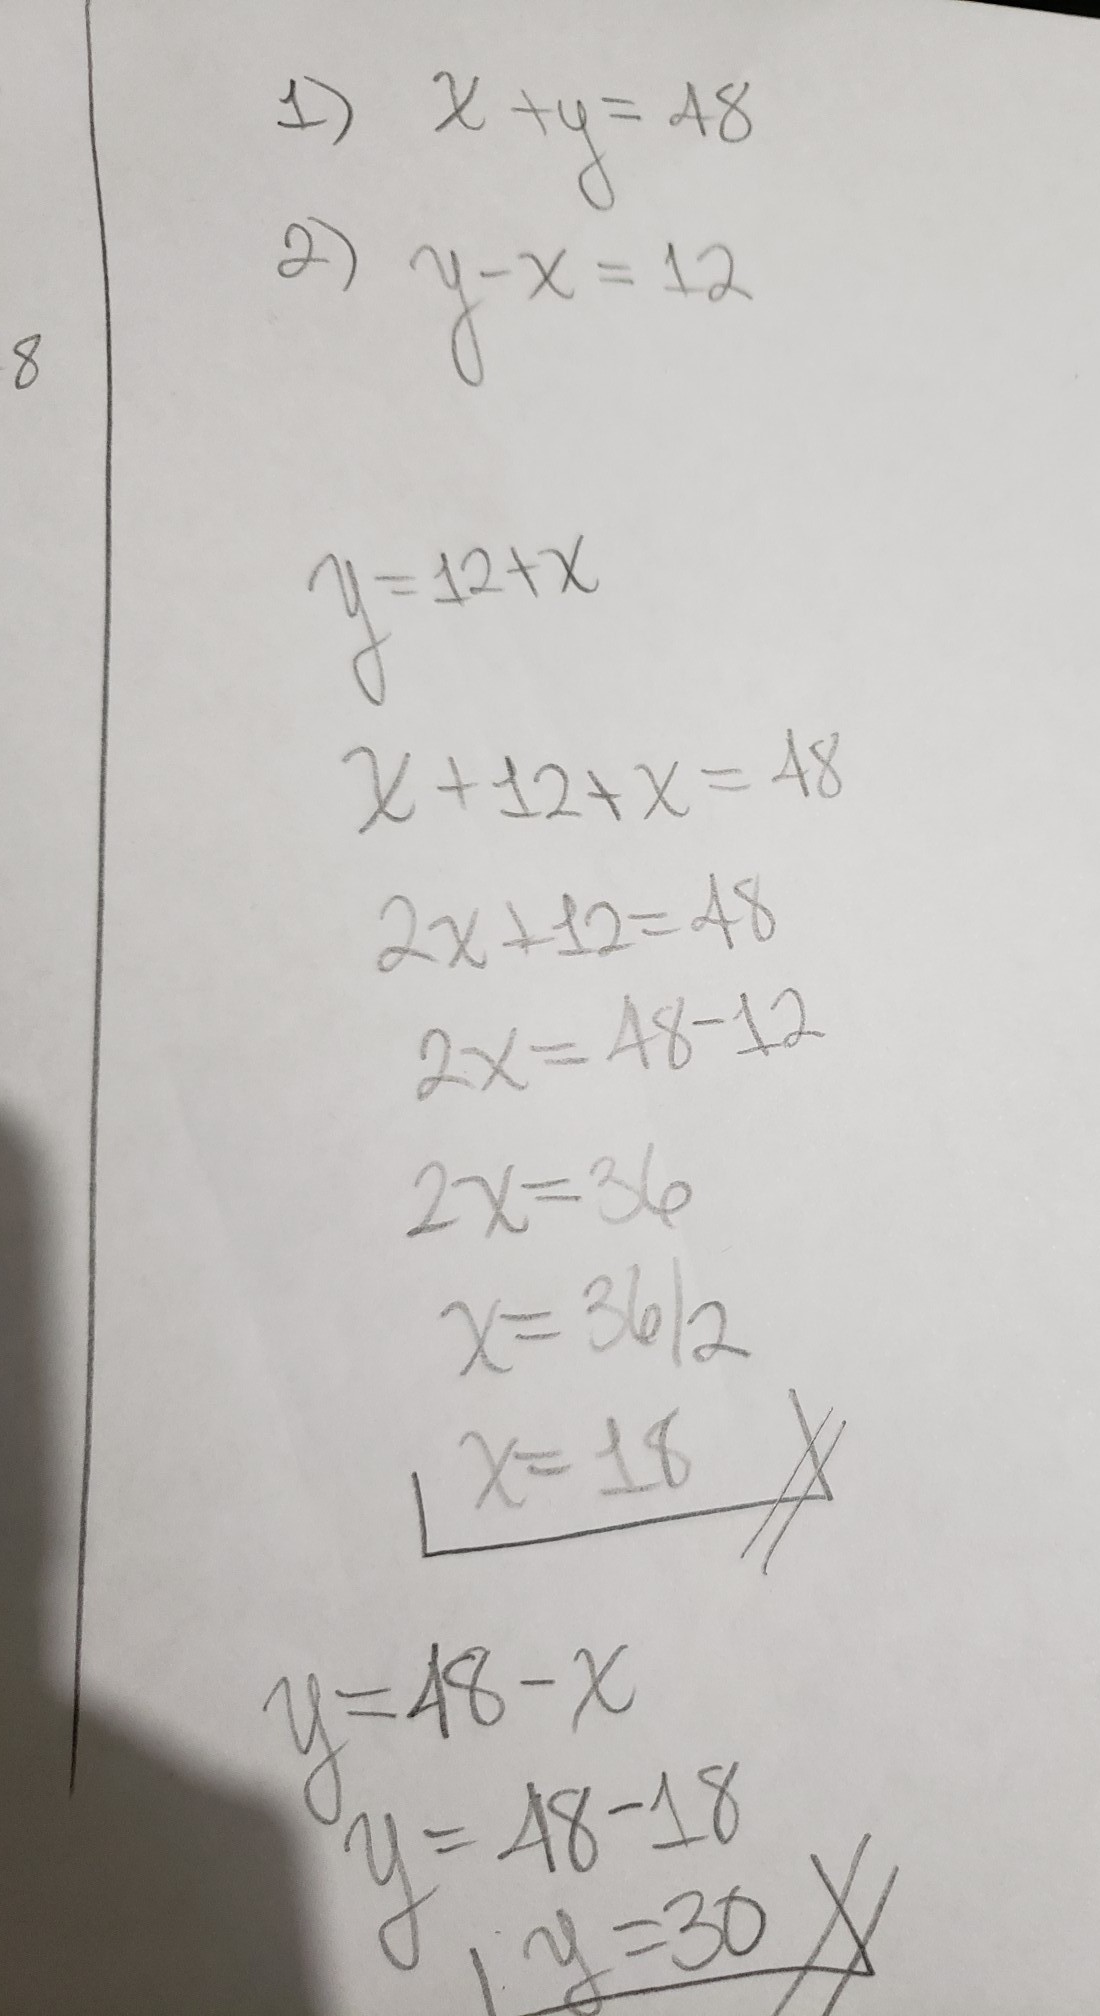 1) x + y = 48
2) y - x = 12
8
y = 12 + x
x + 12 + x = 48
2x + 12 = 48
2x = 48 - 12
2x = 36
x = 36/2
x = 18
y = 48 - x
y = 48 - 18
y = 30